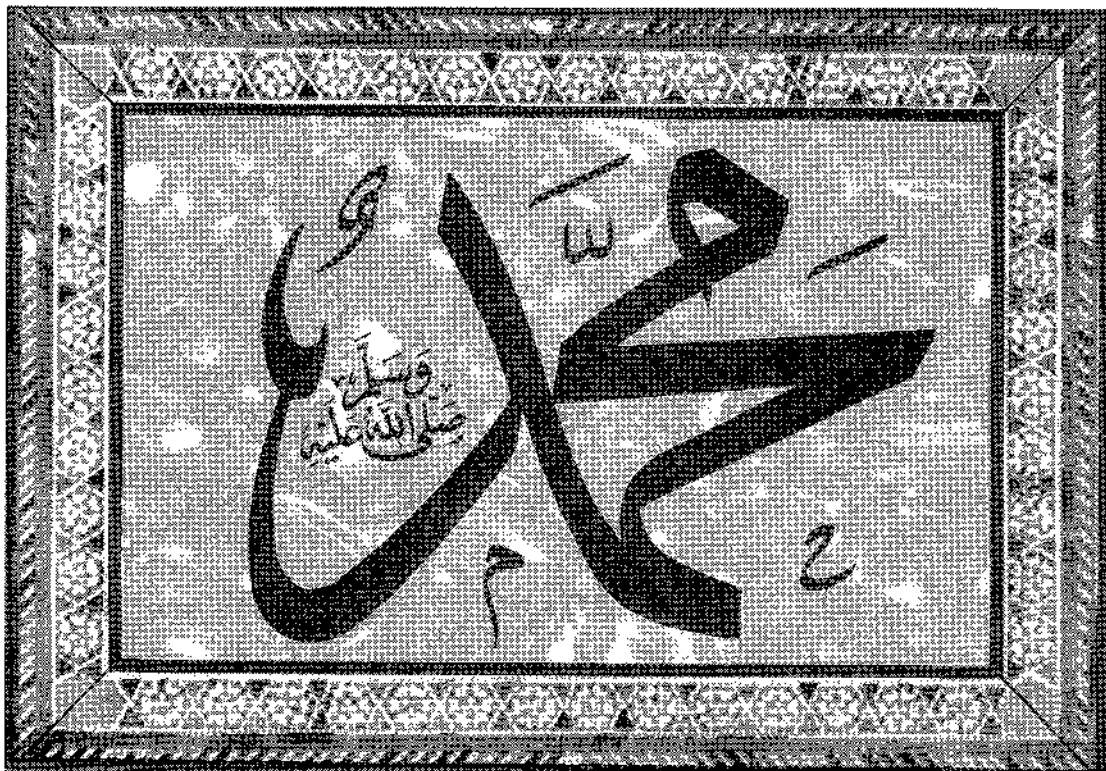 محمد
صَلَّى اللهُ عَلَيْهِ
وَسَلَّمَ